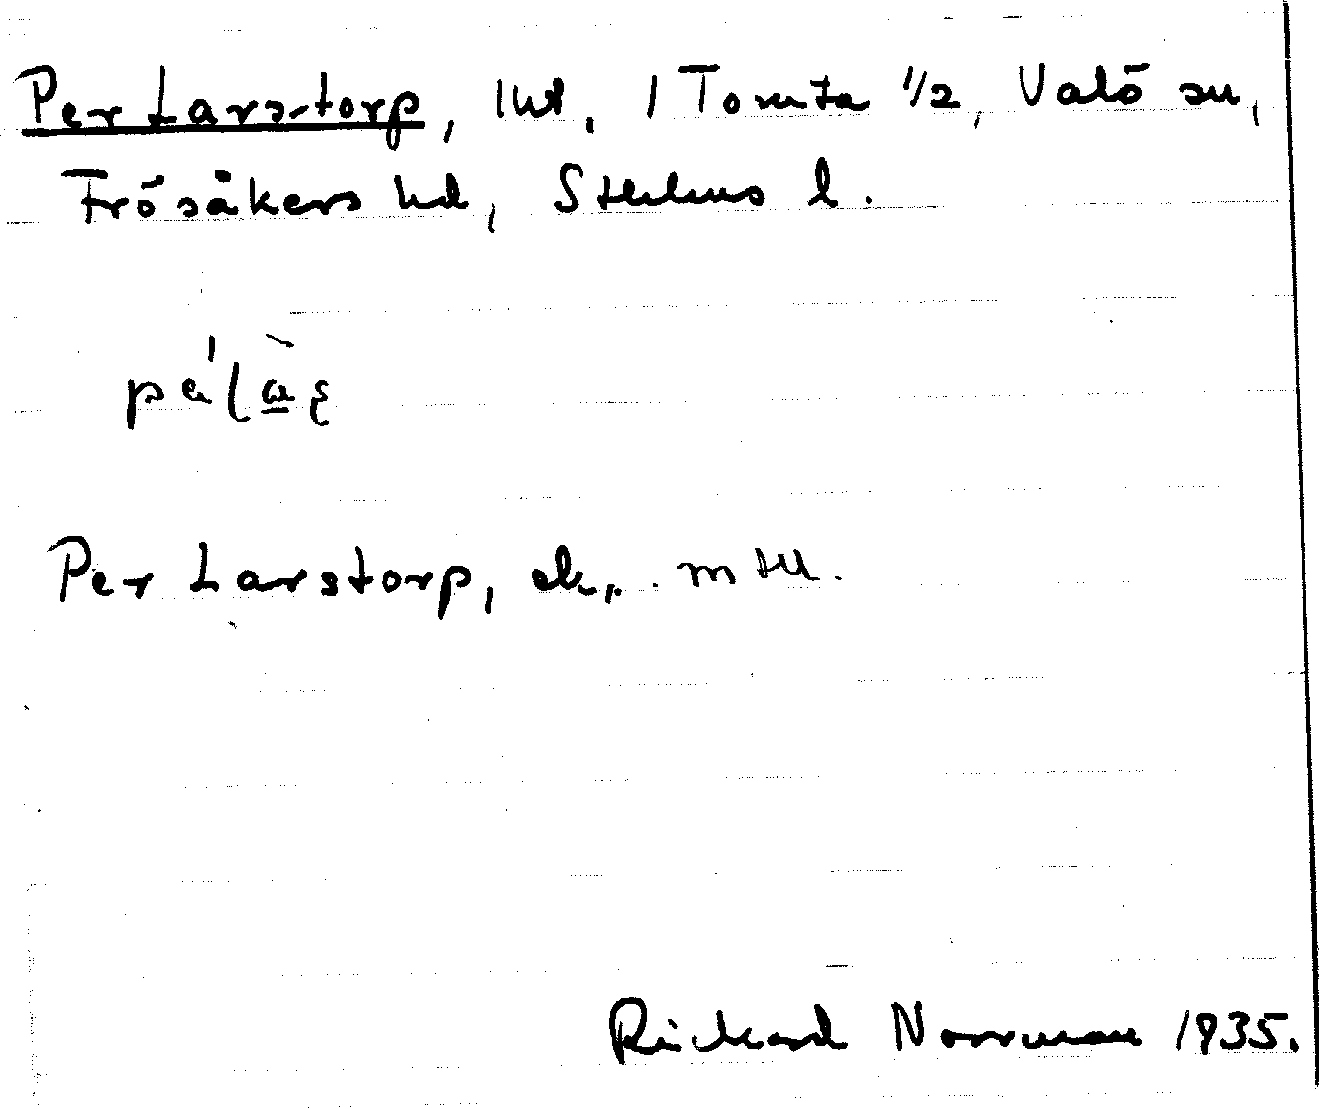 Per Larstorp, lht, / Tomta 1/2, Valö sn,
Frösåkers hd, Sthlms l.
Per Larstorp, ek.
Rickard Norrman 1935.